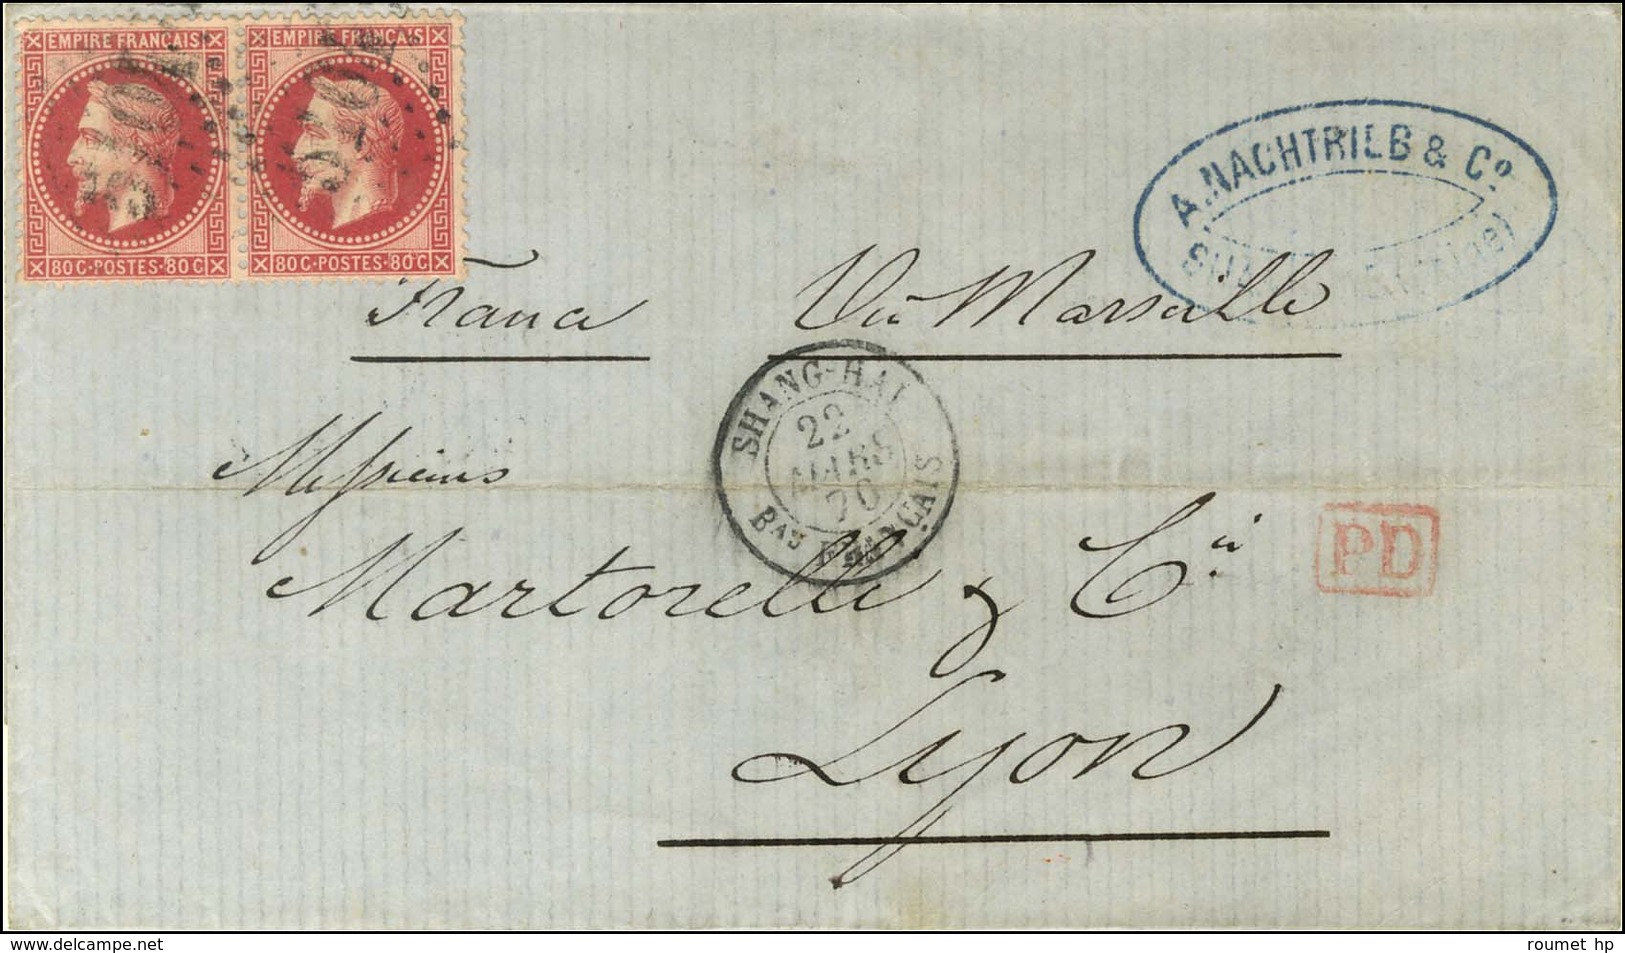 EMPIRE FRANÇAIS
80 C · POSTES · 80 C
EMPIRE FRANÇAIS
80 C · POSTES · 80 C
A. NACHTRIEB & Co.
France Via Marseille
SHANG-HAI
22
MARS
70
BAU FRANÇAIS
Messieurs
Martorelli & Cie
PD
Lyon
delcampe.net
roumet hp